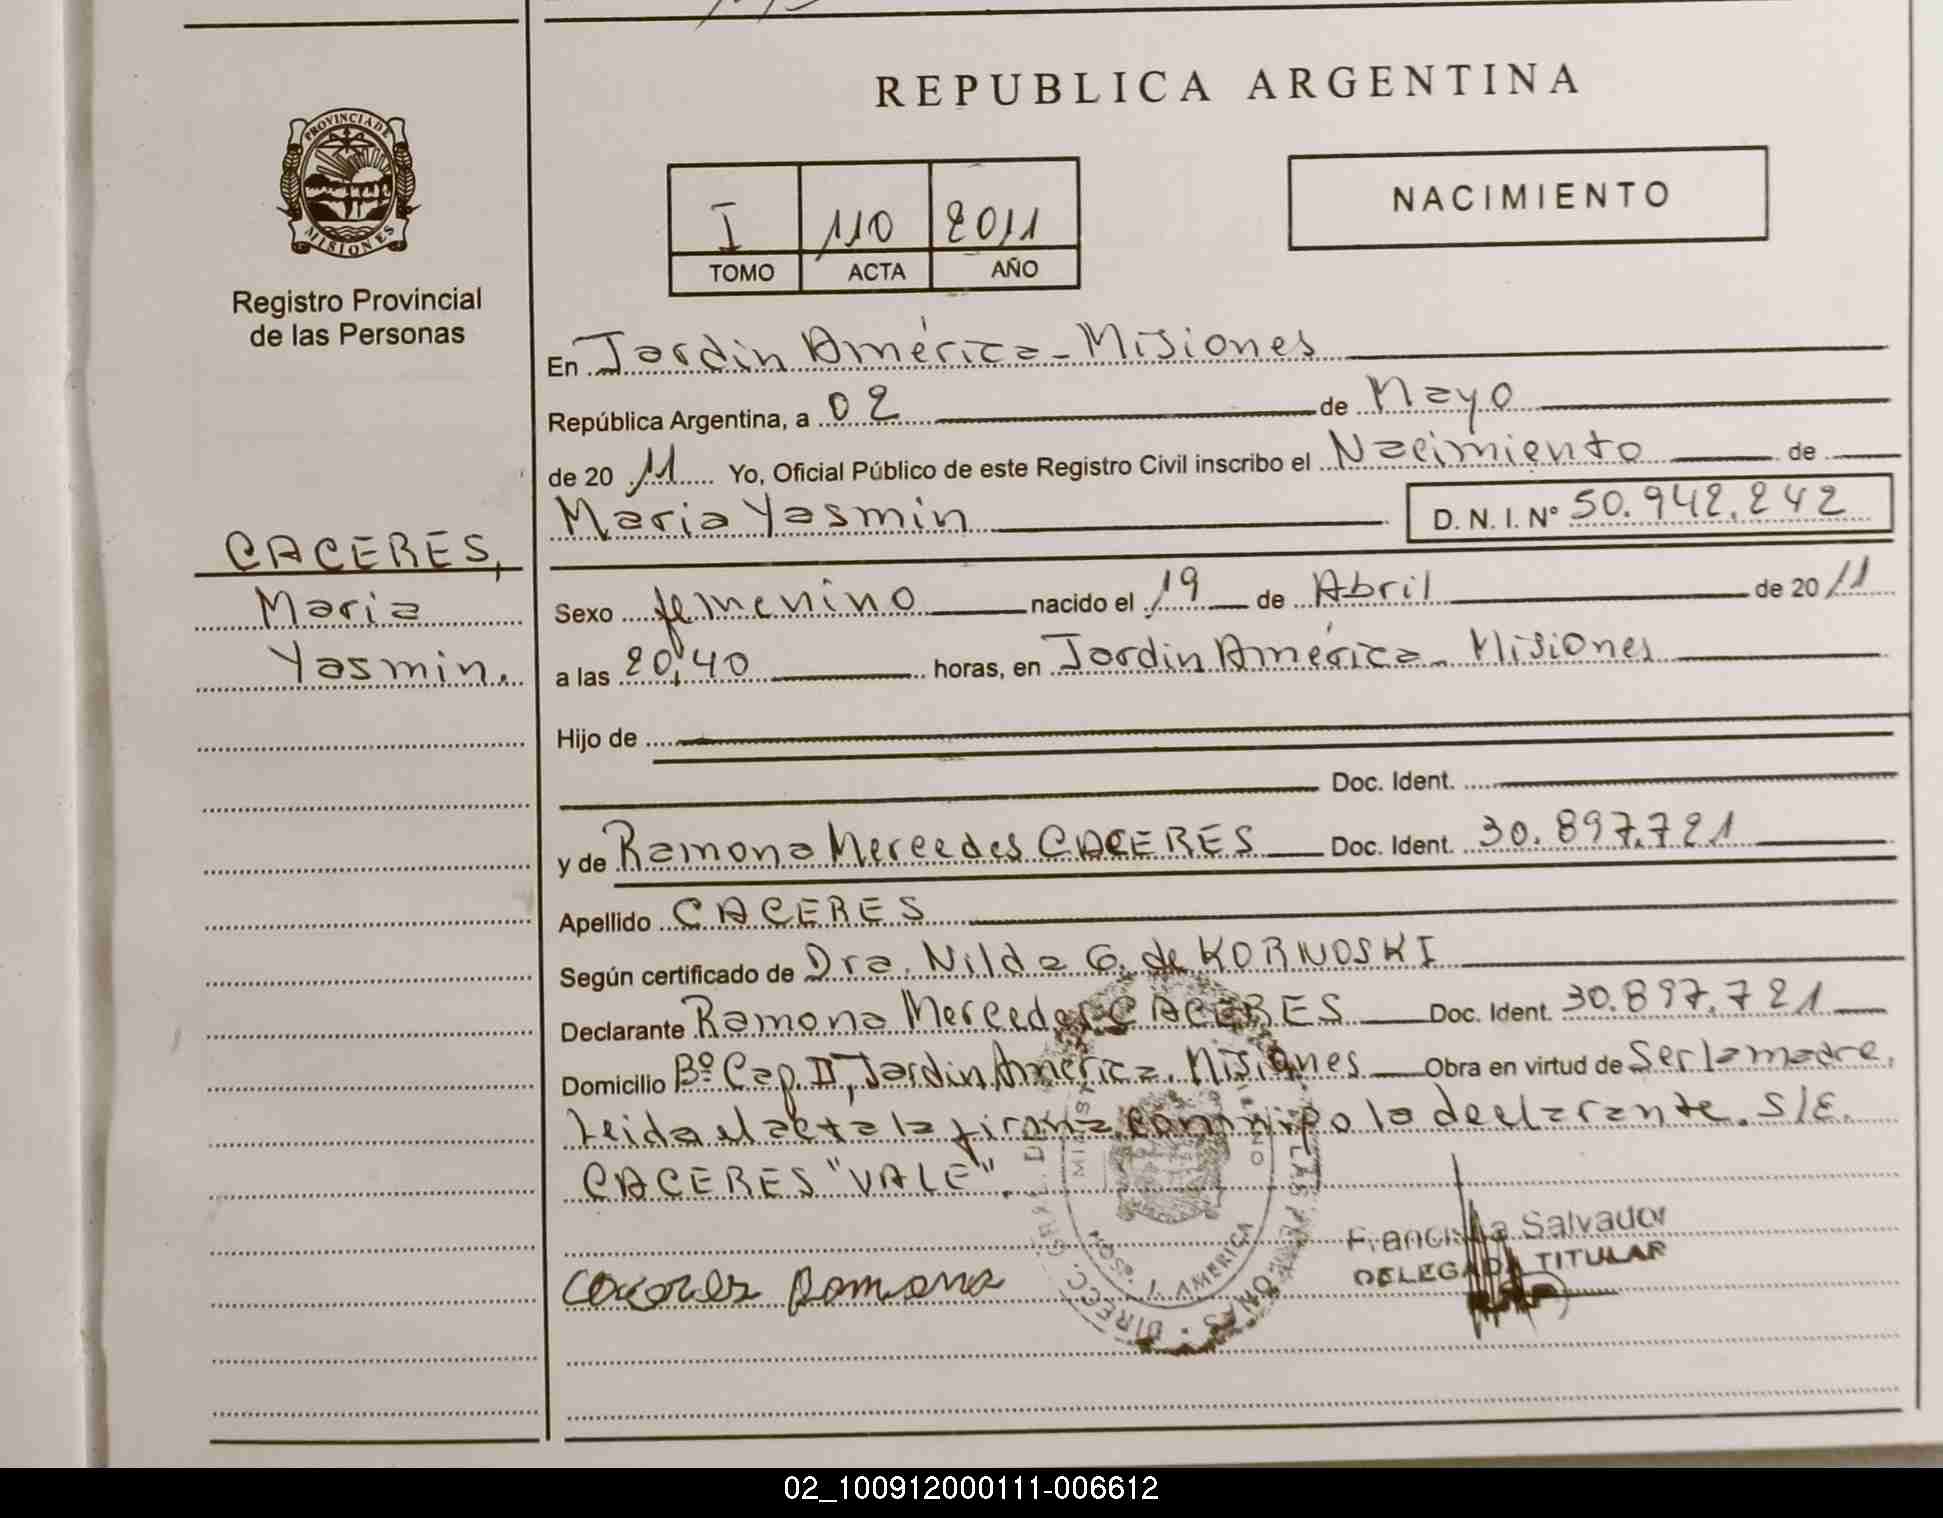 REPUBLICA ARGENTINA
PROVINCIA DE
MISIONES
Registro Provincial
de las Personas
I 110 2011
TOMO ACTA AÑO
NACIMIENTO
En Jardín América - Misiones
República Argentina, a 02 de Mayo
de 20 11 Yo, Oficial Público de este Registro Civil inscribo el Nacimiento de
Maria Yasmin D. N. I. N° 50.942.242
CACERES,
Maria
Yasmin.
Sexo femenino nacido el 19 de Abril de 20 11
a las 20,40 horas, en Jardín América - Misiones
Hijo de
Doc. Ident.
y de Ramona Mercedes CACERES Doc. Ident. 30.897.721
Apellido CACERES
Según certificado de Dra. Nilda G. de KORNOSKI
Declarante Ramona Mercedes CACERES Doc. Ident. 30.897.721
Domicilio Bº Cap. II, Jardín América. Misiones Obra en virtud de Ser la madre.
Leida el acta la firma conmigo la declarante. S/E.
CACERES "VALE".
Caceres Ramona
Francisca Salvador
DELEGADA TITULAR
AMERICA
DIRECC. GRAL. D
02_100912000111-006612